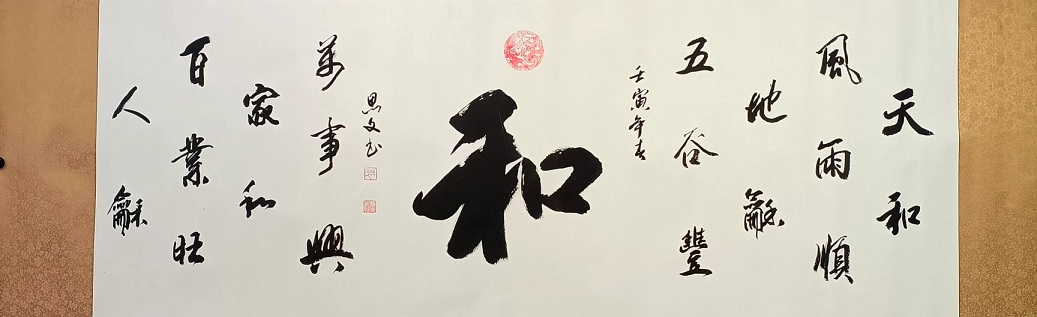 天和
風雨順
地龢
五谷豐
壬寅年春
和
思文书
萬事興
家和
百業旺
人龢